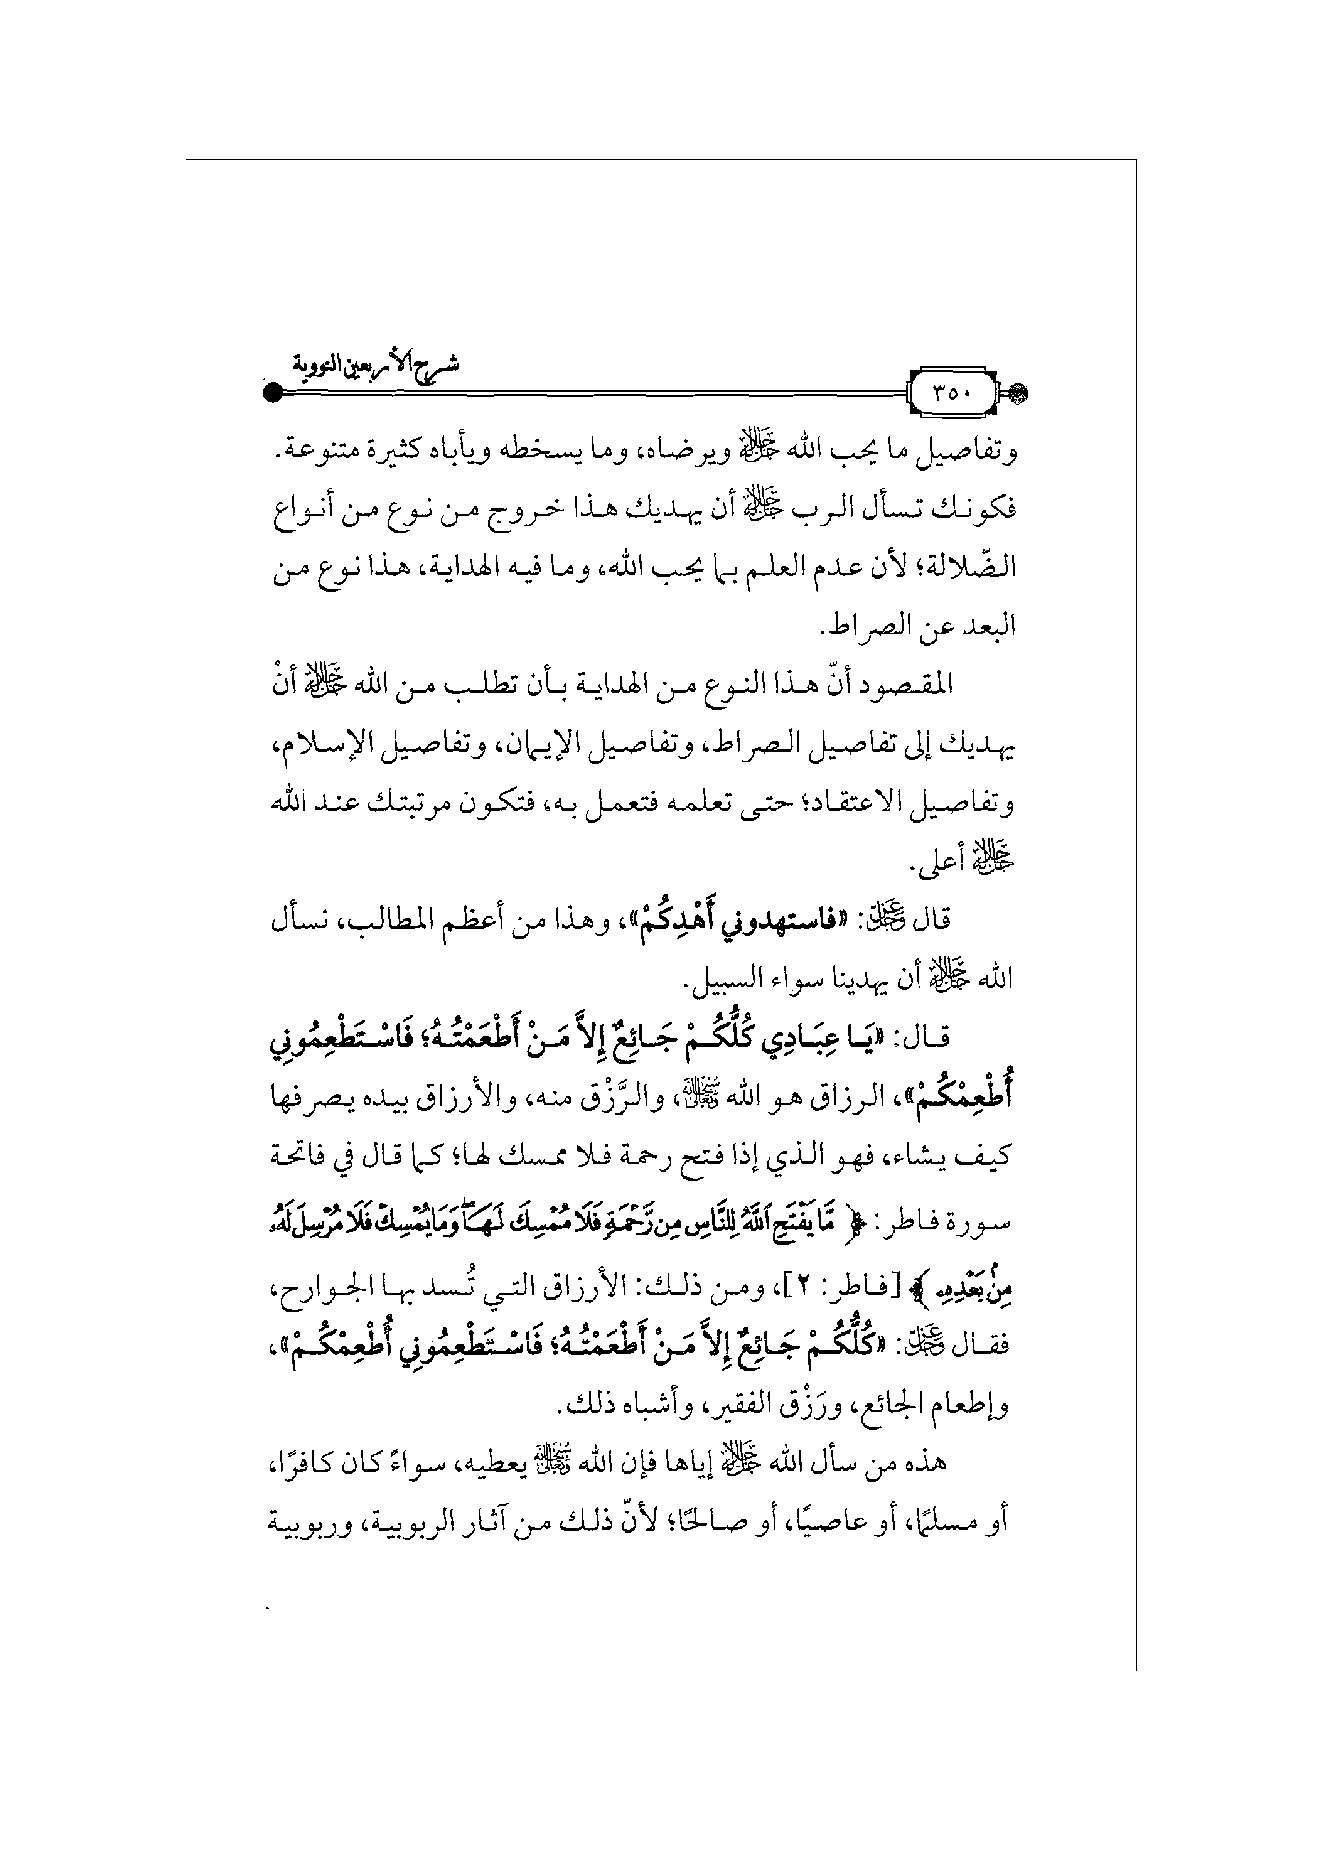 شرح الأربعين النووية
٣٥٠
وتفاصيل ما يحب الله ﷻ ويرضاه، وما يسخطه ويأباه كثيرة متنوعة.
فكونك تسأل الرب ﷻ أن يهديك هذا خروج من نوع من أنواع
الضّلالة؛ لأن عدم العلم بما يحب الله، وما فيه الهداية، هذا نوع من
البعد عن الصراط.
المقصود أنّ هذا النوع من الهداية بأن تطلب من الله ﷻ أنْ
يهديك إلى تفاصيل الصراط، وتفاصيل الإيمان، وتفاصيل الإسلام،
وتفاصيل الاعتقاد؛ حتى تعلمه فتعمل به، فتكون مرتبتك عند الله
ﷻ أعلى.
قال عز وجل: «فاستهدوني أَهْدِكُمْ»، وهذا من أعظم المطالب، نسأل
الله ﷻ أن يهدينا سواء السبيل.
قال: «يَا عِبَادِي كُلُّكُمْ جَائِعٌ إِلاَّ مَنْ أَطْعَمْتُهُ؛ فَاسْتَطْعِمُونِي
أُطْعِمْكُمْ»، الرزاق هو الله سبحانه، والرَّزْق منه، والأرزاق بيده يصرفها
كيف يشاء، فهو الذي إذا فتح رحمة فلا ممسك لها؛ كما قال في فاتحة
سورة فاطر: ﴿مَّا يَفْتَحِ ٱللَّهُ لِلنَّاسِ مِن رَّحْمَةٍ فَلَا مُمْسِكَ لَهَا ۖ وَمَا يُمْسِكْ فَلَا مُرْسِلَ لَهُۥ
مِنۢ بَعْدِهِۦ﴾ [فاطر: ٢]، ومن ذلك: الأرزاق التي تُسد بها الجوارح،
فقال عز وجل: «كُلُّكُمْ جَائِعٌ إِلاَّ مَنْ أَطْعَمْتُهُ؛ فَاسْتَطْعِمُونِي أُطْعِمْكُمْ»،
وإطعام الجائع، ورَزْق الفقير، وأشباه ذلك.
هذه من سأل الله ﷻ إياها فإن الله سبحانه يعطيه، سواءً كان كافرًا،
أو مسلمًا، أو عاصيًا، أو صالحًا؛ لأنّ ذلك من آثار الربوبية، وربوبية